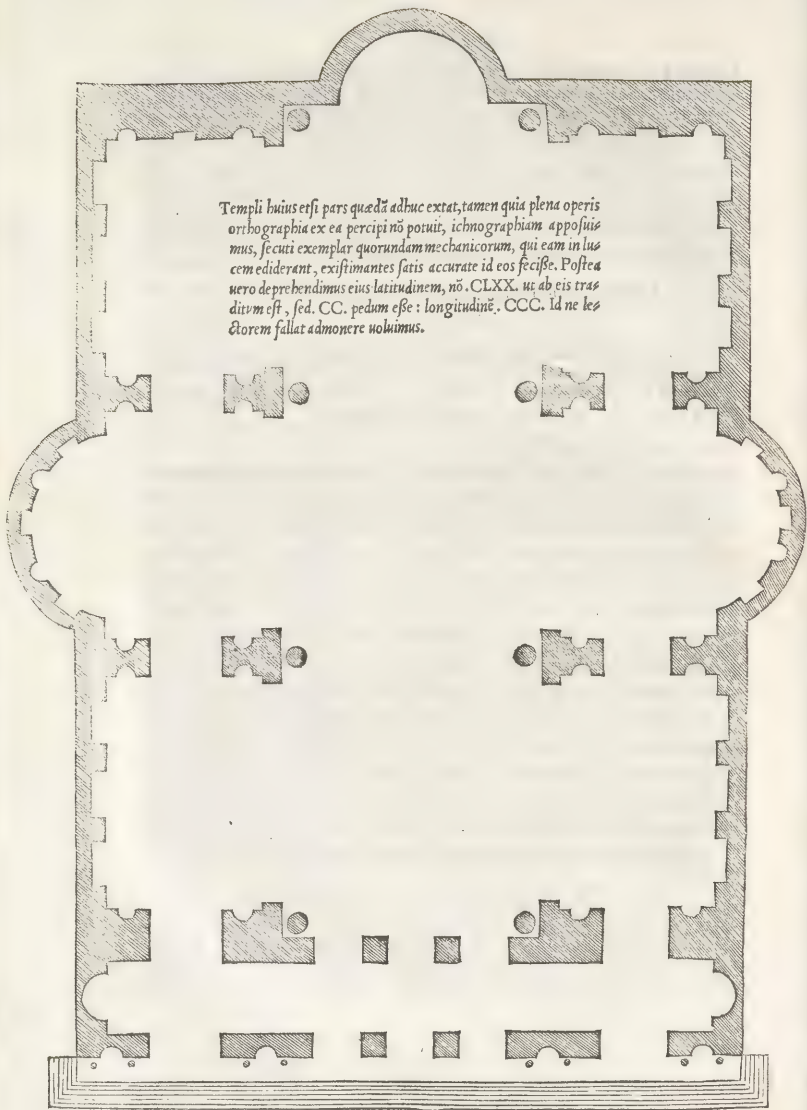 Templi huius etſi pars quædã adhuc extat, tamen quia plena operis
orthographia ex ea percipi nõ potuit, ichnographiam appoſui⸗
mus, ſecuti exemplar quorundam mechanicorum, qui eam in lu⸗
cem ediderant, exiſtimantes ſatis accurate id eos feciße. Poſtea
uero deprehendimus eius latitudinem, nõ. CLXX. ut ab eis tra⸗
ditvm eſt, ſed. CC. pedum eße: longitudinẽ. CCC. Id ne le⸗
ctorem fallat admonere uoluimus.